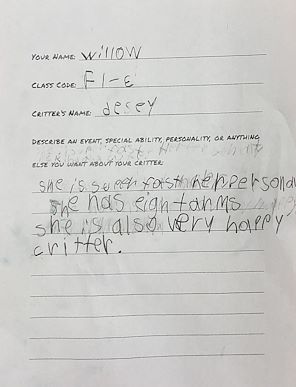 YOUR NAME: willow
CLASS CODE: F1-E
CRITTER'S NAME: decey
DESCRIBE AN EVENT, SPECIAL ABILITY, PERSONALITY, OR ANYTHING
ELSE YOU WANT ABOUT YOUR CRITTER:
she is super fast her persona
she has eight arms
she is also very happy
critter.